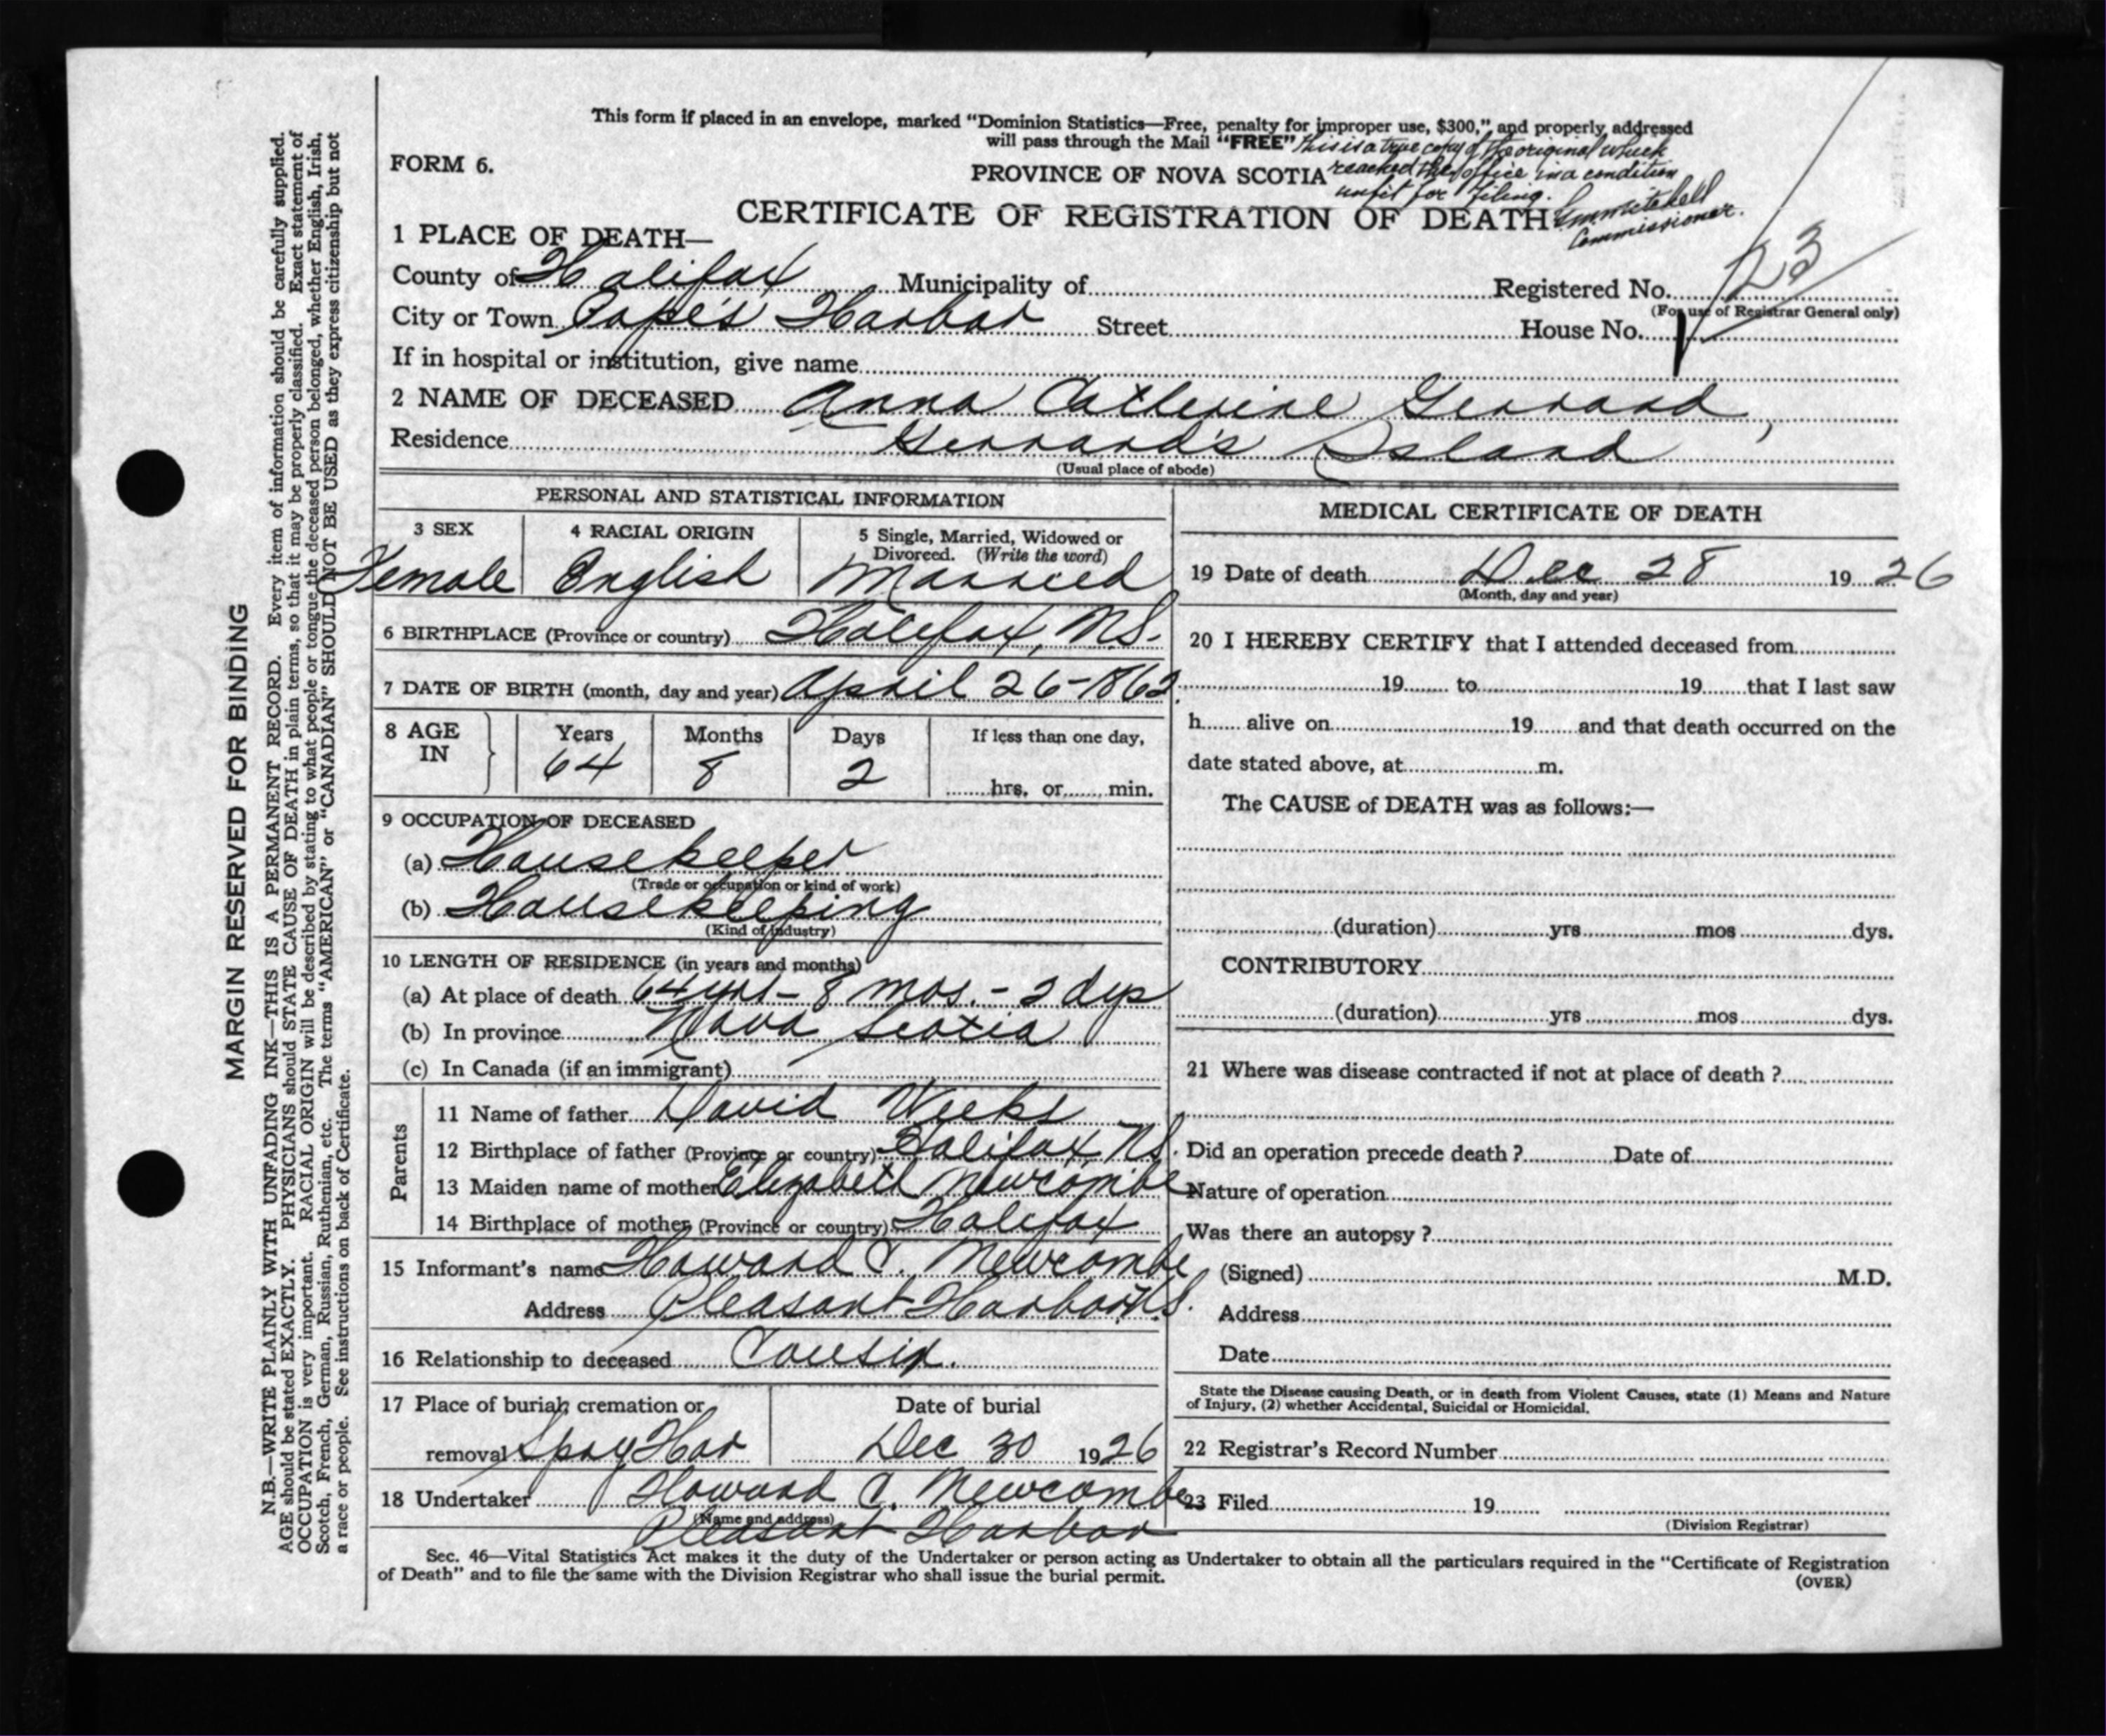 This form if placed in an envelope, marked "Dominion Statistics—Free, penalty for improper use, $300," and properly addressed
will pass through the Mail "FREE" This is a true copy of the original which
FORM 6.
PROVINCE OF NOVA SCOTIA reached the office in a condition
unfit for filing.
CERTIFICATE OF REGISTRATION OF DEATH
Commissioner.
1 PLACE OF DEATH—
County of Halifax Municipality of Registered No. 123
(For use of Registrar General only)
City or Town Pope's Harbor Street House No.
If in hospital or institution, give name
2 NAME OF DECEASED Anna Catherine Gerrard,
Residence Gerrard's Island
(Usual place of abode)
PERSONAL AND STATISTICAL INFORMATION
3 SEX 4 RACIAL ORIGIN 5 Single, Married, Widowed or
Divorced. (Write the word)
Female English Married
6 BIRTHPLACE (Province or country) Halifax, N.S.
7 DATE OF BIRTH (month, day and year) April 26-1862
8 AGE IN Years Months Days If less than one day,
64 8 2 hrs. or min.
9 OCCUPATION OF DECEASED
(a) Housekeeper
(Trade or occupation or kind of work)
(b) Housekeeping
(Kind of industry)
10 LENGTH OF RESIDENCE (in years and months)
(a) At place of death 64 yrs - 8 mos. - 2 dys
(b) In province Nova Scotia
(c) In Canada (if an immigrant)
Parents
11 Name of father David Weeks
12 Birthplace of father (Province or country) Halifax N.S.
13 Maiden name of mother Elizabeth Newcombe
14 Birthplace of mother (Province or country) Halifax
15 Informant's name Howard C. Newcombe
Address Pleasant Harbor N.S.
16 Relationship to deceased Cousin.
17 Place of burial, cremation or Date of burial
removal Spry Har Dec 30 1926
18 Undertaker Howard C. Newcombe
(Name and address)
Pleasant Harbor
MEDICAL CERTIFICATE OF DEATH
19 Date of death Dec 28 19 26
(Month, day and year)
20 I HEREBY CERTIFY that I attended deceased from
19 to 19 that I last saw
h alive on 19 and that death occurred on the
date stated above, at m.
The CAUSE of DEATH was as follows:—
(duration) yrs mos dys.
CONTRIBUTORY
(duration) yrs mos dys.
21 Where was disease contracted if not at place of death ?
Did an operation precede death ? Date of
Nature of operation
Was there an autopsy ?
(Signed) M.D.
Address
Date
State the Disease causing Death, or in death from Violent Causes, state (1) Means and Nature
of Injury, (2) whether Accidental, Suicidal or Homicidal.
22 Registrar's Record Number
23 Filed 19
(Division Registrar)
Sec. 46—Vital Statistics Act makes it the duty of the Undertaker or person acting as Undertaker to obtain all the particulars required in the "Certificate of Registration
of Death" and to file the same with the Division Registrar who shall issue the burial permit.
(OVER)
MARGIN RESERVED FOR BINDING
N.B.—WRITE PLAINLY WITH UNFADING INK—THIS IS A PERMANENT RECORD. Every item of information should be carefully supplied.
AGE should be stated EXACTLY. PHYSICIANS should STATE CAUSE OF DEATH in plain terms, so that it may be properly classified. Exact statement of
OCCUPATION is very important. RACIAL ORIGIN will be described by stating to what people or tongue the deceased person belonged, whether English, Irish,
Scotch, French, German, Russian, Ruthenian, etc. The terms "AMERICAN" or "CANADIAN" SHOULD NOT BE USED as they express citizenship but not
a race or people. See instructions on back of Certificate.